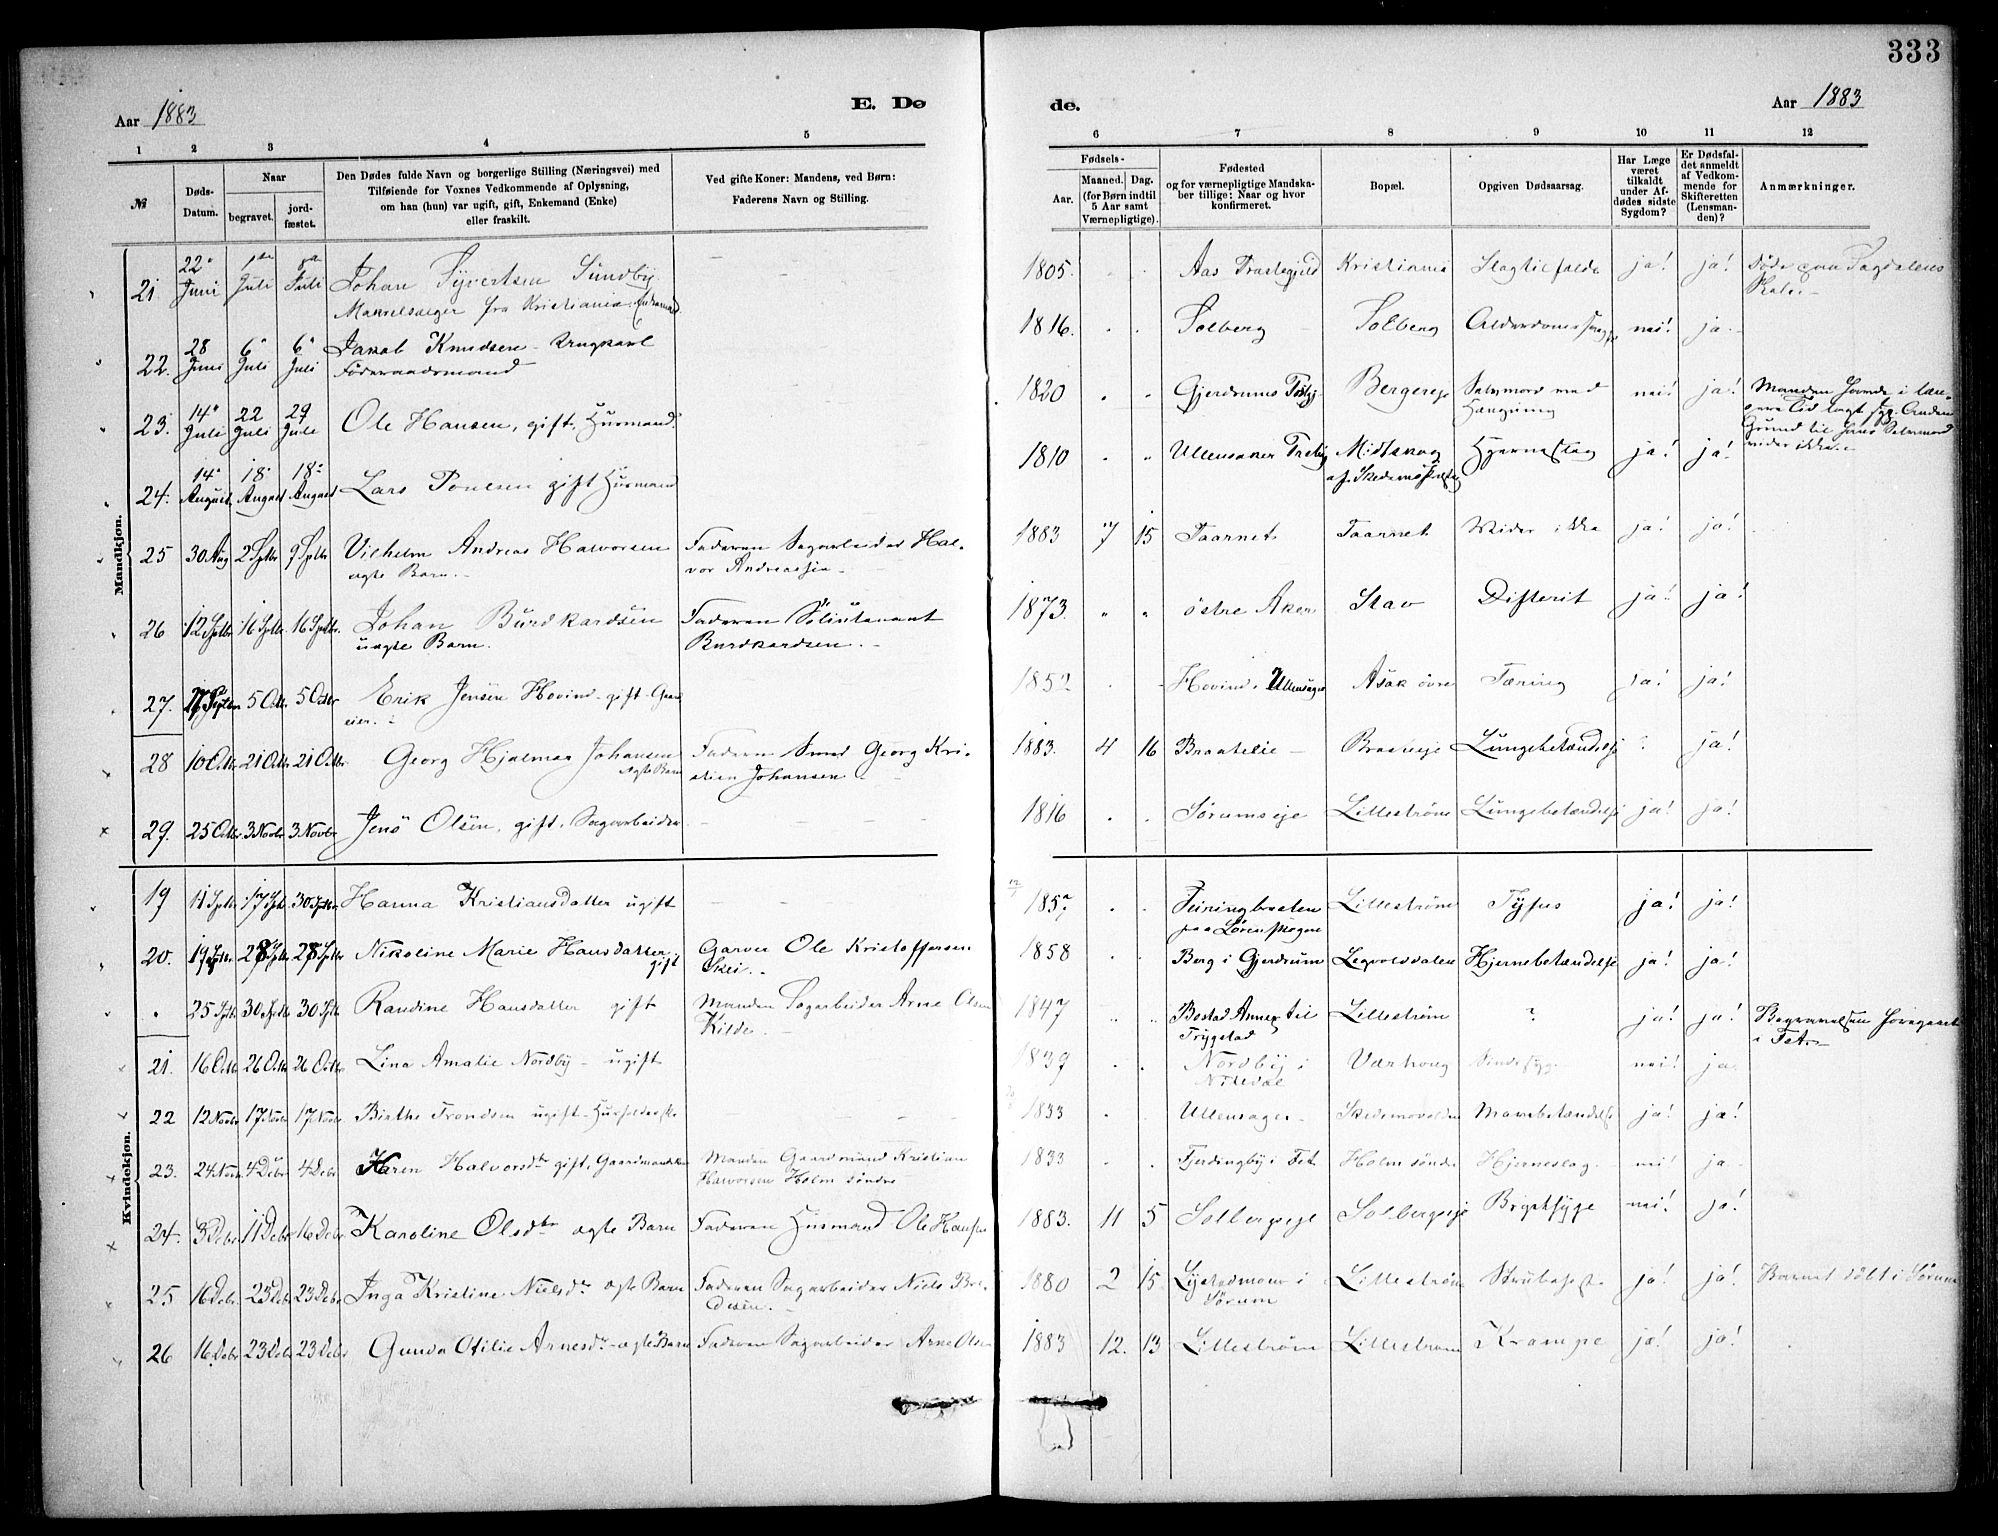 333
Aar 1883
E. Dø
de.
Aar 1883
1 2 3 4 5 6 7 8 9 10 11 12
№
Døds-
Datum.
Naar
begravet.
jord-
fæstet.
Den Dødes fulde Navn og borgerlige Stilling (Næringsvei) med
Tilføiende for Voxnes Vedkommende af Oplysning,
om han (hun) var ugift, gift, Enkemand (Enke)
eller fraskilt.
Ved gifte Koner: Mandens, ved Børn:
Faderens Navn og Stilling.
Fødsels-
Aar.
Maaned. Dag.
(for Børn indtil
5 Aar samt
Værnepligtige).
Fødested
og for værnepligtige Mandska-
ber tillige: Naar og hvor
konfirmeret.
Bopæl.
Opgiven Dødsaarsag.
Har Læge
været
tilkaldt
under Af-
dødes sidste
Sygdom?
Er Dødsfal-
det anmeldt
af Vedkom-
mende for
Skifteretten
(Lensman-
den)?
Anmærkninger.
Mandkjøn.
21 22 Juni 1 Juli 8 Juli Johan Syvertsen Sundby
fra Kristiania
1805. Aas Kristiania ja! ja!
22. 28 Juni 6 Juli 6 Juli Jakob Knudsen
Føderaadsmand
1816. Solberg Solberg nei! ja
23. 14 Juli 22 Juli 29 Juli Ole Hansen, gift, Husmand
1820 Gjerdrums Bergereje Selvmord ved
Hængning nei! ja! Manden havde i læn-
gere Tid
24. 14 August 18 August 18 August Lars gift Husmand
1810 Ullensaker Midtskog ja! ja!
25 30 Aug 2 Sptbr 9 Sptbr Vilhelm Andreas Halvorsen
ægte Barn.
Faderen Sagarbeider Hal-
vor
1883 7 15 Taarnet Taarnet ikke ja! ja!
26 12 Sptbr 16 Sptbr. 16 Sptbr. Johan Burdkardsen
Barn.
Faderen
Burdkardsen.
1873. østre Aker Stav Difterit ja! ja!
27. 5 Octbr. 5 Octbr Erik Jensen Hovind gift Gaard
eier.
Hovind i Asak øvre Tæring ja! ja!
28 10 Octbr 21 Octbr 21 Octbr. Georg Hjalmar Johansen
ægte Barn
Faderen Smed Georg Kri-
stian Johansen
1883. 4 16 Braatelie Lungebetændelse ja!
29. 25 Octbr. 3 Novbr 3 Novbr Jens Olsen, gift, Sagarbeider
1816 Sørumseje Lillestrøm Lungebetændelse ja! ja!
Kvindekjøn.
19 11 Sptbr 17 Sptbr 30 Sptbr Hanna Kristiansdatter ugift
Lillestrøm Tyfus ja! ja!
20. 19 Sptbr 28 Sptbr 28 Sptbr Nikoline Marie Hansdatter
gift
Garver Ole Kristoffersen
Skei.
1858 Berg i Gjerdrum Leopoldsdalen Hjernebetændelse ja! ja!
25 Sptbr 30 Sptbr 30 Sptbr Randine Hansdatter gift
Manden Sagarbeider Arne Olsen
Kilde.
1847 Annex til
Trygstad Lillestrøm ? ja! ja! Begravelsen foregaaet
i Fet.
21. 16 Octbr 26 Octbr 26 Octbr Lina Amalie Nordby ugift
1839 Nordby i
Nitedal Værhoug nei! ja
22 12 Novbr 17 Novbr 17 Novbr Birthe Trondsen ugift
1833 Ullensager. Mavebetændelse ja! ja!
23. 24 Novbr 4 Debr 4 Debr Karen Halvorsdtr gift, Gaardmandskone
Manden Gaardmand Kristian
Halvorsen Holm søndre
1833 Fjerdingby i Fet Holm søndre Hjerneslag. nei! ja
24. 3 Debr 11 Debr 16 Debr Karoline Olsdtr ægte Barn
Faderen Husmand Ole Hansen
1883. 11 5 Solbergseje Solbergseje Brystsyge nei! ja!
25 16 Debr. 23 Debr 23 Debr Inga Kristine Nielsdtr ægte Barn
Faderen Sagarbeider Niels
1880 2 15 i
Sørum Lillestrøm Strubehoste ja! ja! Barnet døbt i Sørum
26 16 Debr 23 Debr 23 Debr Gunda Otilie Arnesdtr ægte Barn
Faderen Sagarbeider Arne Olsen
1883 12. 13 Lillestrøm Lillestrøm Krampe ja! ja!